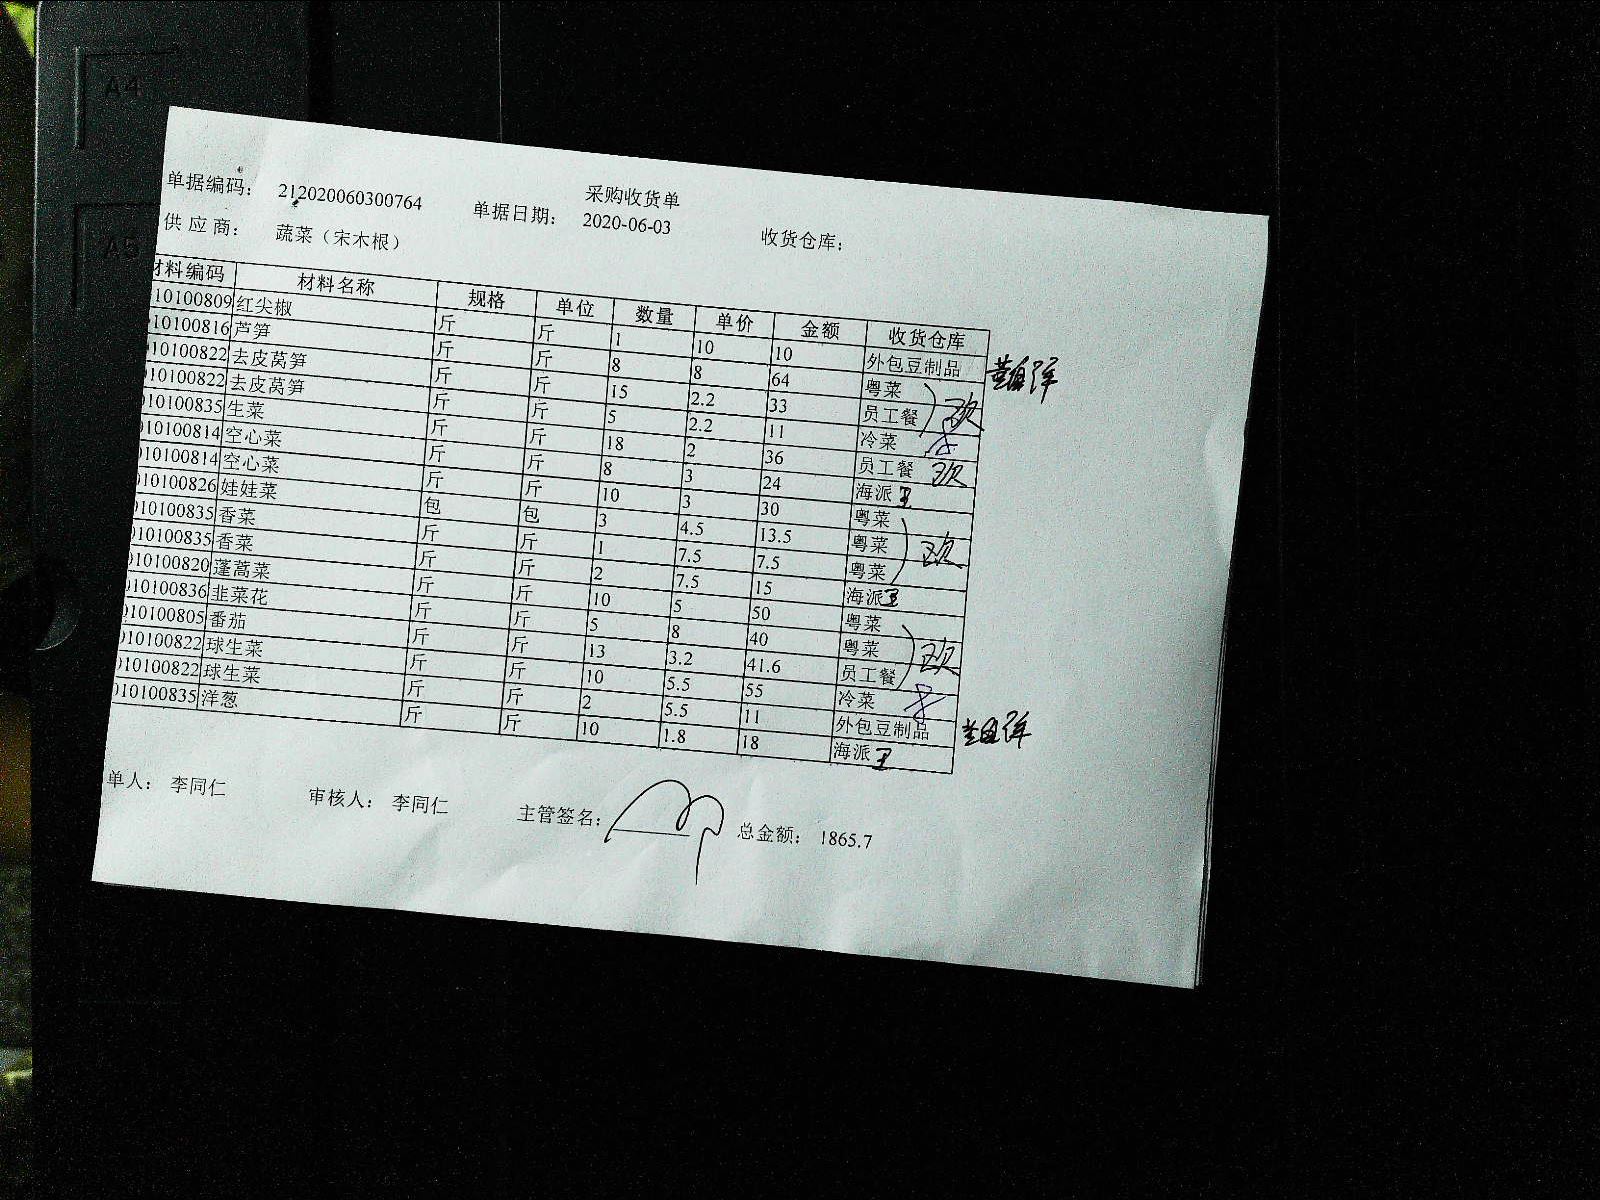 A4
A5
采购收货单
单据编码： 212020060300764 单据日期： 2020-06-03 收货仓库：
供应商： 蔬菜（宋木根）
材料编码 材料名称 规格 单位 数量 单价 金额 收货仓库
10100809 红尖椒 斤 斤 1 10 10 外包豆制品
10100816 芦笋 斤 斤 8 8 64 粤菜
10100822 去皮莴笋 斤 斤 15 2.2 33 员工餐
10100822 去皮莴笋 斤 斤 5 2.2 11 冷菜
010100835 生菜 斤 斤 18 2 36 员工餐
010100814 空心菜 斤 斤 8 3 24 海派 王
010100814 空心菜 斤 斤 10 3 30 粤菜
010100826 娃娃菜 包 包 3 4.5 13.5 粤菜
010100835 香菜 斤 斤 1 7.5 7.5 粤菜
010100835 香菜 斤 斤 2 7.5 15 海派 王
010100820 蓬蒿菜 斤 斤 10 5 50 粤菜
010100836 韭菜花 斤 斤 5 8 40 粤菜
010100805 番茄 斤 斤 13 3.2 41.6 员工餐
010100822 球生菜 斤 斤 10 5.5 55 冷菜
010100822 球生菜 斤 斤 2 5.5 11 外包豆制品
010100835 洋葱 斤 斤 10 1.8 18 海派 王
单人： 李同仁 审核人： 李同仁 主管签名： 总金额： 1865.7